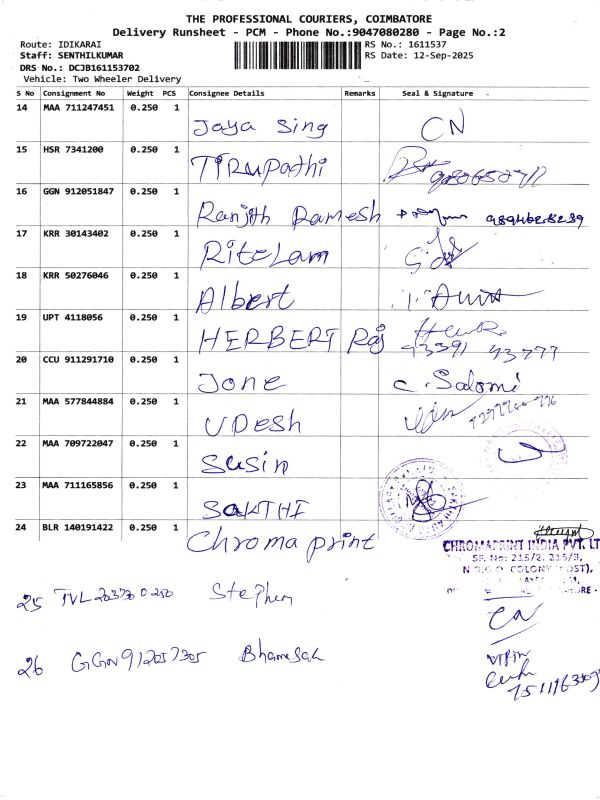 THE PROFESSIONAL COURIERS, COIMBATORE
Delivery Runsheet - PCM - Phone No.:9047080280 - Page No.:2
Route: IDIKARAI RS No.: 1611537
Staff: SENTHILKUMAR RS Date: 12-Sep-2025
DRS No.: DCJB161153702
Vehicle: Two Wheeler Delivery
S No Consignment No Weight PCS Consignee Details Remarks Seal & Signature
14 MAA 711247451 0.250 1 Jaya Sing CN
15 HSR 7341200 0.250 1 Tirupathi
16 GGN 912051847 0.250 1 Ranjith Ramesh
17 KRR 30143402 0.250 1 Ritelam
18 KRR 50276046 0.250 1 Albert
19 UPT 4118056 0.250 1 HERBERT Raj 93391 43777
20 CCU 911291710 0.250 1 Jone C. Salomi
21 MAA 577844884 0.250 1 UDesh
22 MAA 709722047 0.250 1 Susin
23 MAA 711165856 0.250 1 SAKTHI
24 BLR 140191422 0.250 1 Chroma print
CHROMAPRINT INDIA PVT. LT
SF. No: 215/2, 215/3,
N.G.G.O. COLONY (POST),
25 Stephen
CN
26 Bhamesah